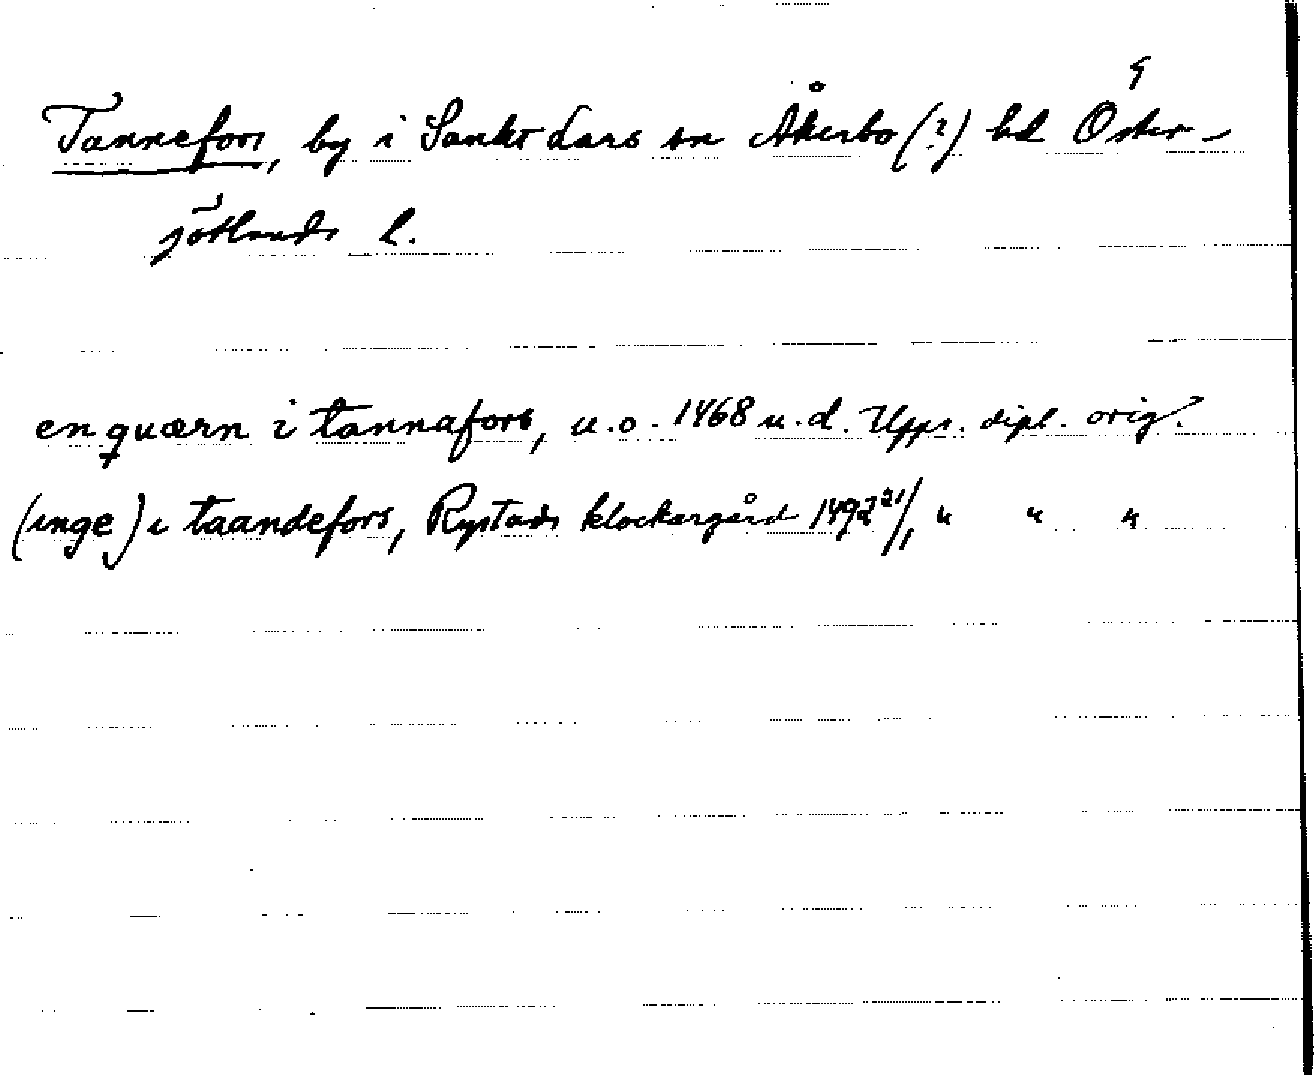 Tannefors, by i Sankt Lars sn Åkerbo (?) hd Öster-
götlands l.
en quærn i tannafors, u.o. 1468 u.d. Upps. dipl. orig.
(inge) i taandefors, Rystads klockargård 1492 21/1, " " "